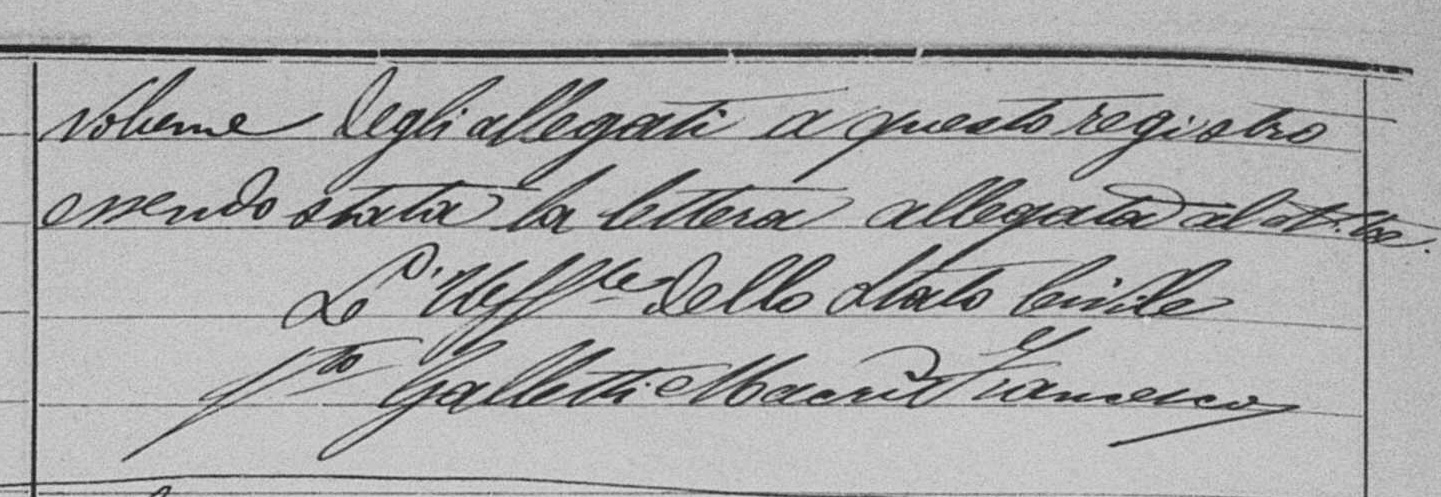 volume degli allegati a questo registro
essendo stata la lettera allegata al
L'Uff.le dello Stato Civile
f.to Galletti Macrì Francesco